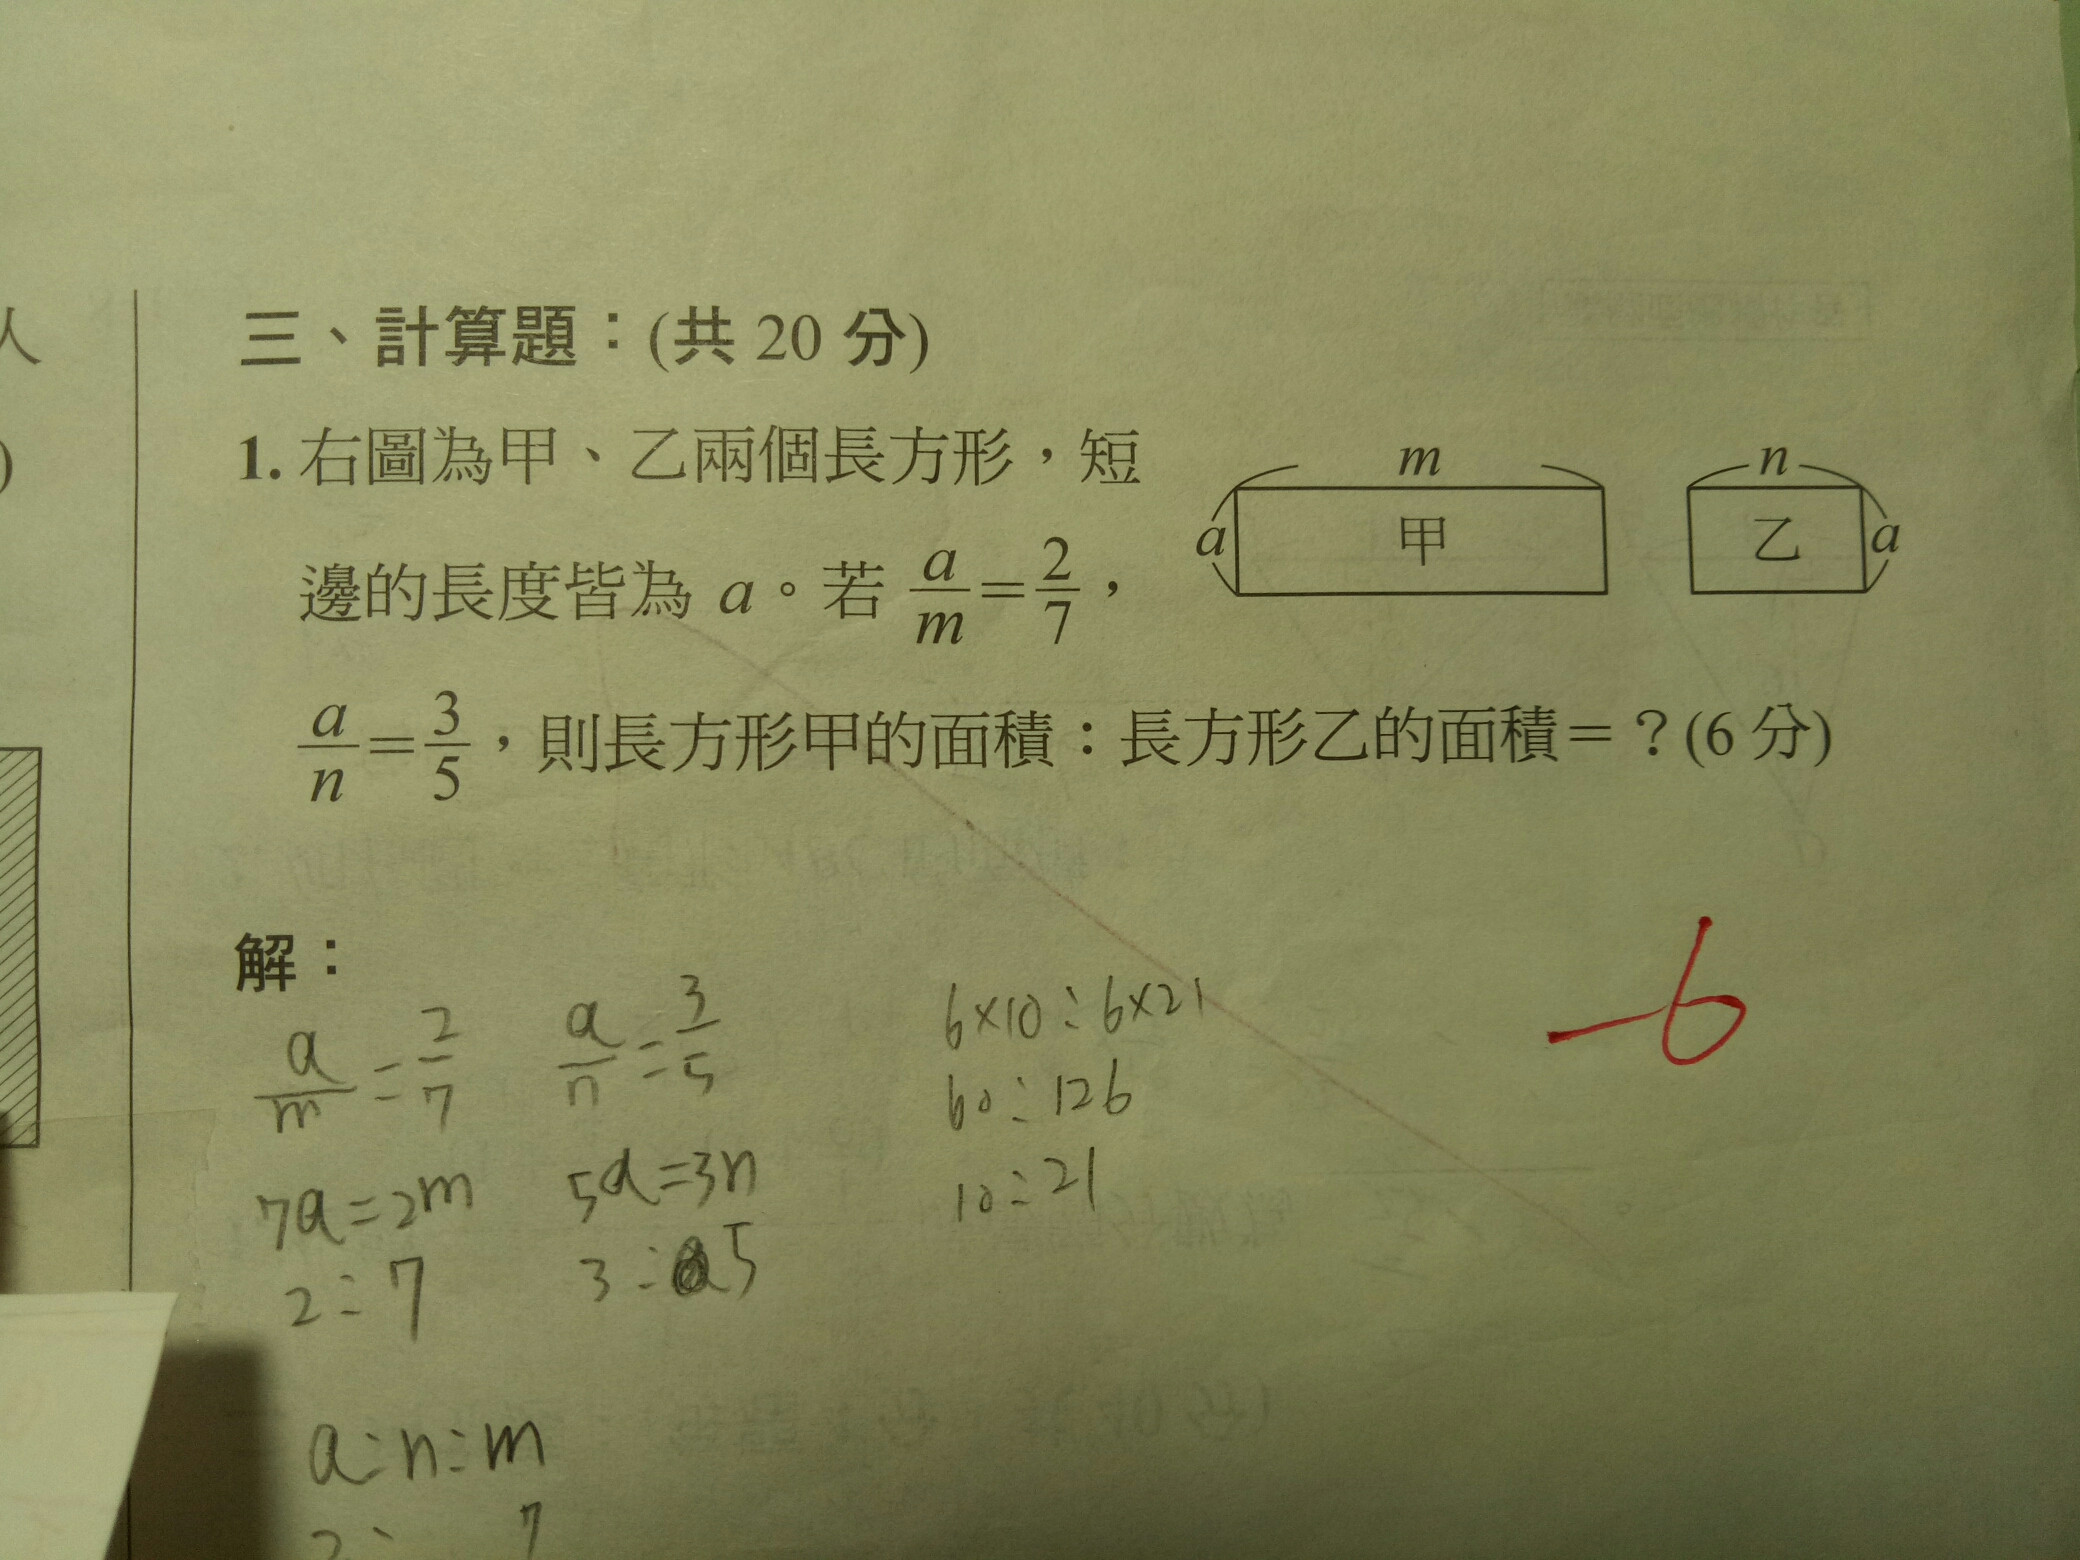 人
)
三、計算題：(共 20 分)
1. 右圖為甲、乙兩個長方形，短
邊的長度皆為 a。若 a/m = 2/7，
a/n = 3/5，則長方形甲的面積：長方形乙的面積＝？(6 分)
m
a
甲
n
乙
a
解：
a/m = 2/7
7a=2m
2:7
a/n = 3/5
5a=3n
3:5
6×10:6×21
60:126
10:21
-6
a:n:m
2: 7